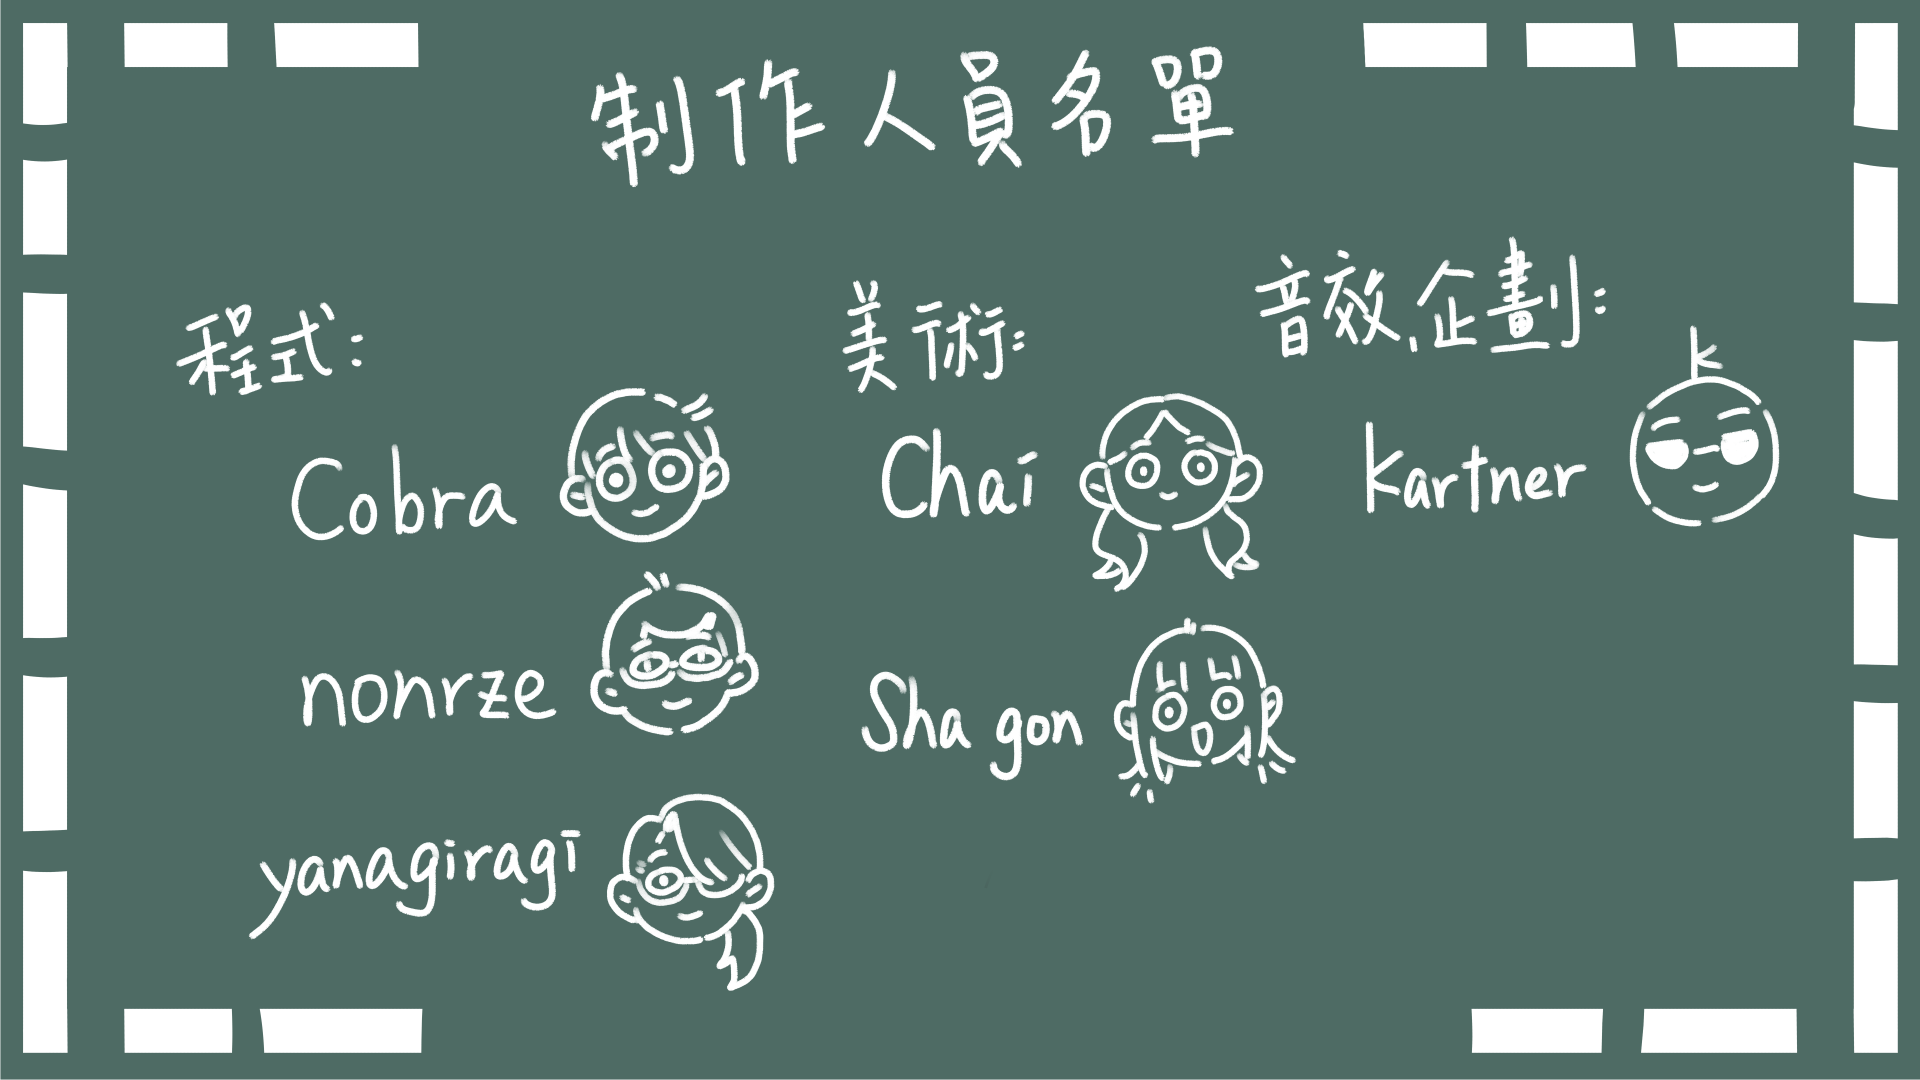 制作人員名單
程式:
Cobra
nonrze
yanagiragi
美術:
Chai
Sha gon
音效、企劃:
kartner
K